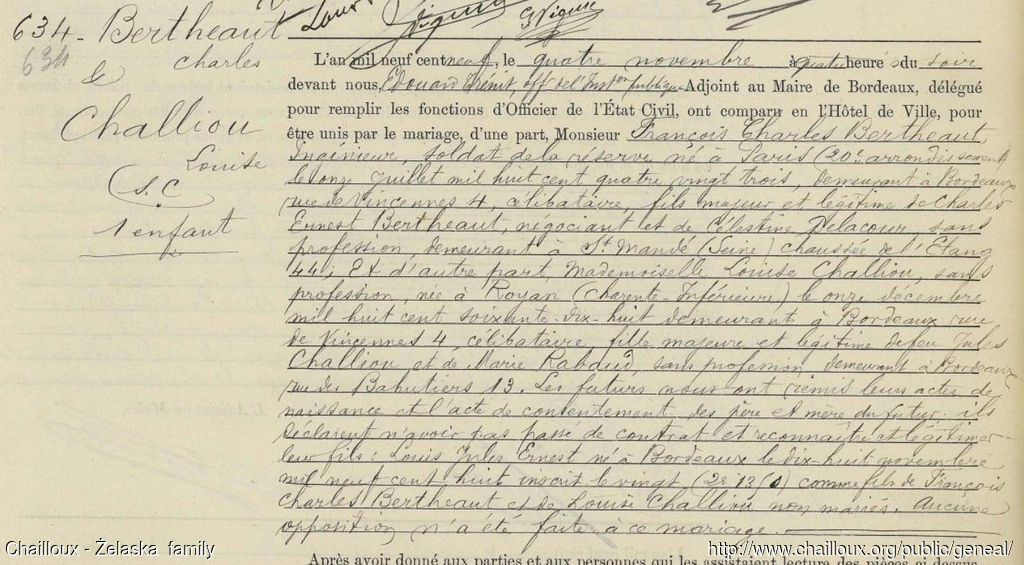 634 - Bertheaut
634
Charles
&
Challiou
Louise
S.C
1 enfant
L'an mil neuf cent neuf, le quatre novembre à quatre heures du soir
devant nous, Edouard off. de l'Inst.on publique Adjoint au Maire de Bordeaux, délégué
pour remplir les fonctions d'Officier de l'État Civil, ont comparu en l'Hôtel de Ville, pour
être unis par le mariage, d'une part, Monsieur François Charles Bertheaut,
Ingénieur, soldat de la réserve né à Paris (20e arrondissement
le onze Juillet mil huit cent quatre vingt trois, demeurant à Bordeaux
rue de Vincennes 4, célibataire, fils majeur et légitime de Charles
Ernest Bertheaut, négociant et de Célestine Delacour, sans
profession, demeurant à St Mandé (Seine) chaussée de l'Etang
44, Et d'autre part, Mademoiselle Louise Challiou, sans
profession, née à Royan (Charente-Inférieure) le onze décembre
mil huit cent soixante-dix-huit demeurant à Bordeaux rue
de Vincennes 4, célibataire, fille majeure et légitime de feu Jules
Challiou et de Marie Rabaud, sans profession, demeurant à Bordeaux
rue des Bahutiers 13. Les futurs nous ont remis leurs actes de
naissance et l'acte de consentement des père et mère du futur. ils
déclarent n'avoir pas passé de contrat et reconnaître et légitimer
leur fils : Louis Jules Ernest né à Bordeaux le dix-huit novembre
mil neuf cent huit inscrit le vingt, (2e 13 ) comme fils de François
Charles Bertheaut et de Louise Challiou non mariés. Aucune
opposition n'a été faite à ce mariage.
Après avoir donné aux parties et aux personnes qui les assistaient lecture des pièces ci-dessus
Chailloux - Żelaska family
http://www.chailloux.org/public/geneal/